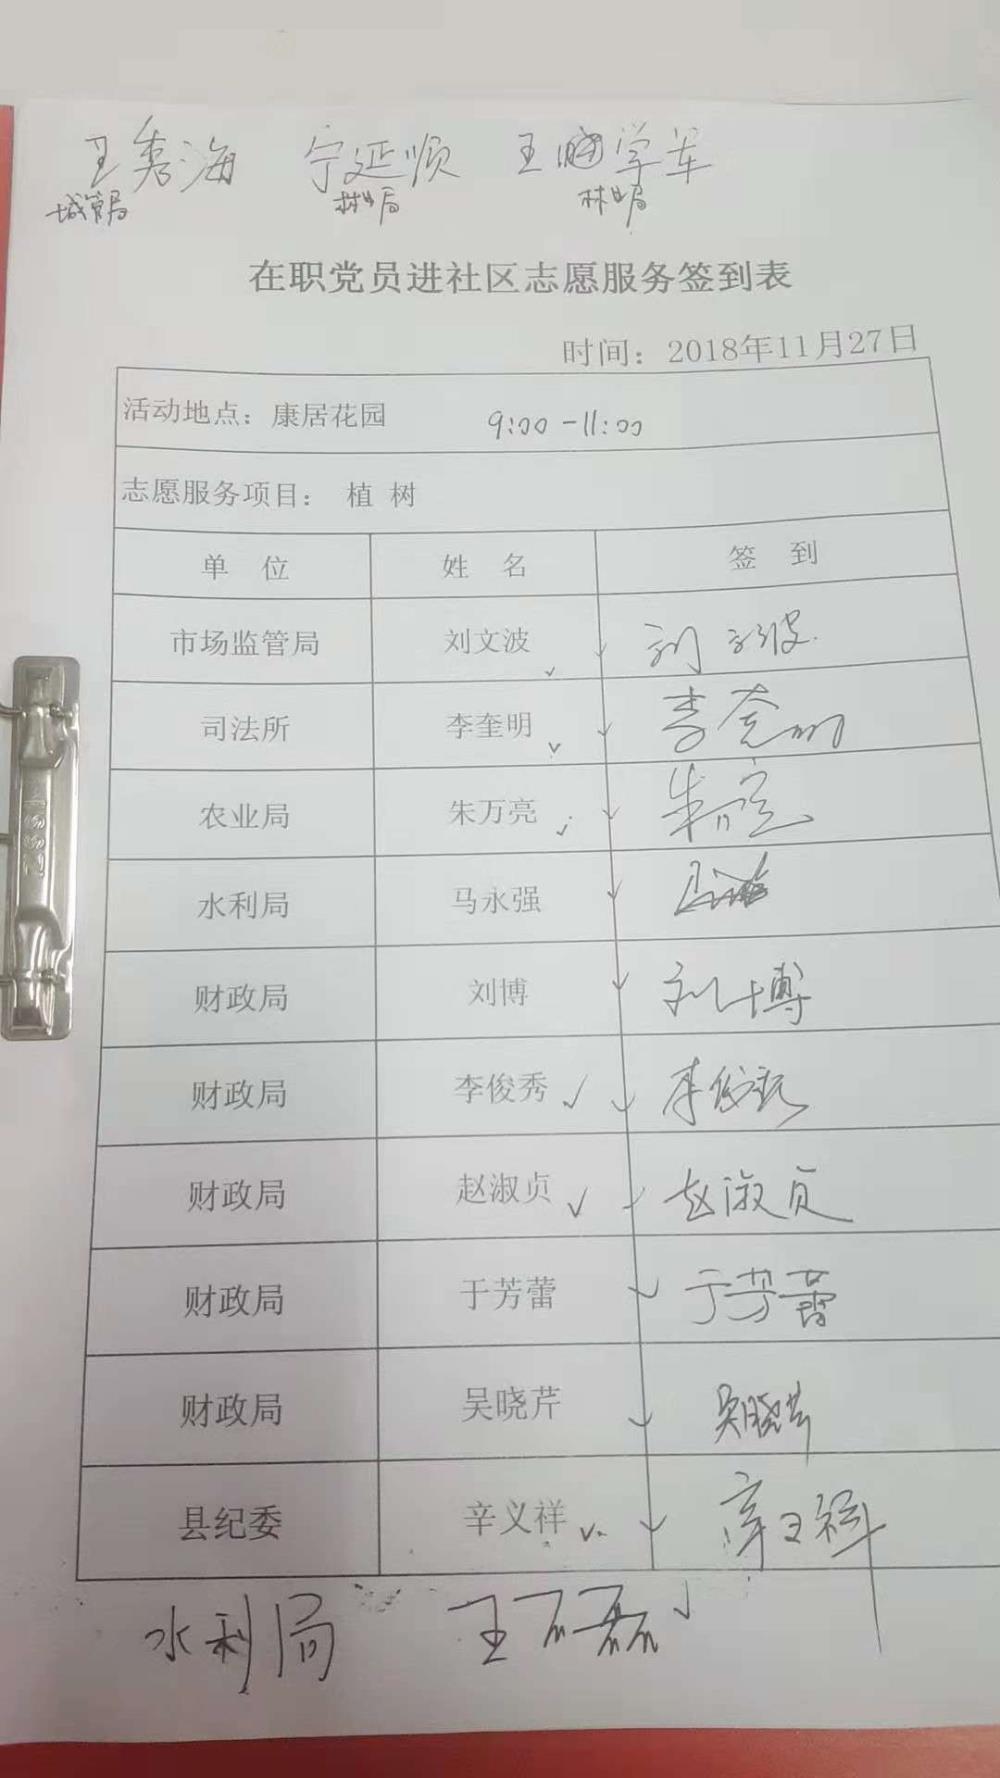 王秀海 宁延顺 王学军
城管局 林业局 林业局
在职党员进社区志愿服务签到表
时间：2018年11月27日
活动地点：康居花园 9:00-11:00
志愿服务项目：植树
单位 姓名 签到
市场监管局 刘文波 刘文波
司法所 李奎明 李奎明
农业局 朱万亮 朱万亮
水利局 马永强
财政局 刘博 刘博
财政局 李俊秀 李俊秀
财政局 赵淑贞 赵淑贞
财政局 于芳蕾 于芳蕾
财政局 吴晓芹 吴晓芹
县纪委 辛义祥 辛义祥
水利局 王磊